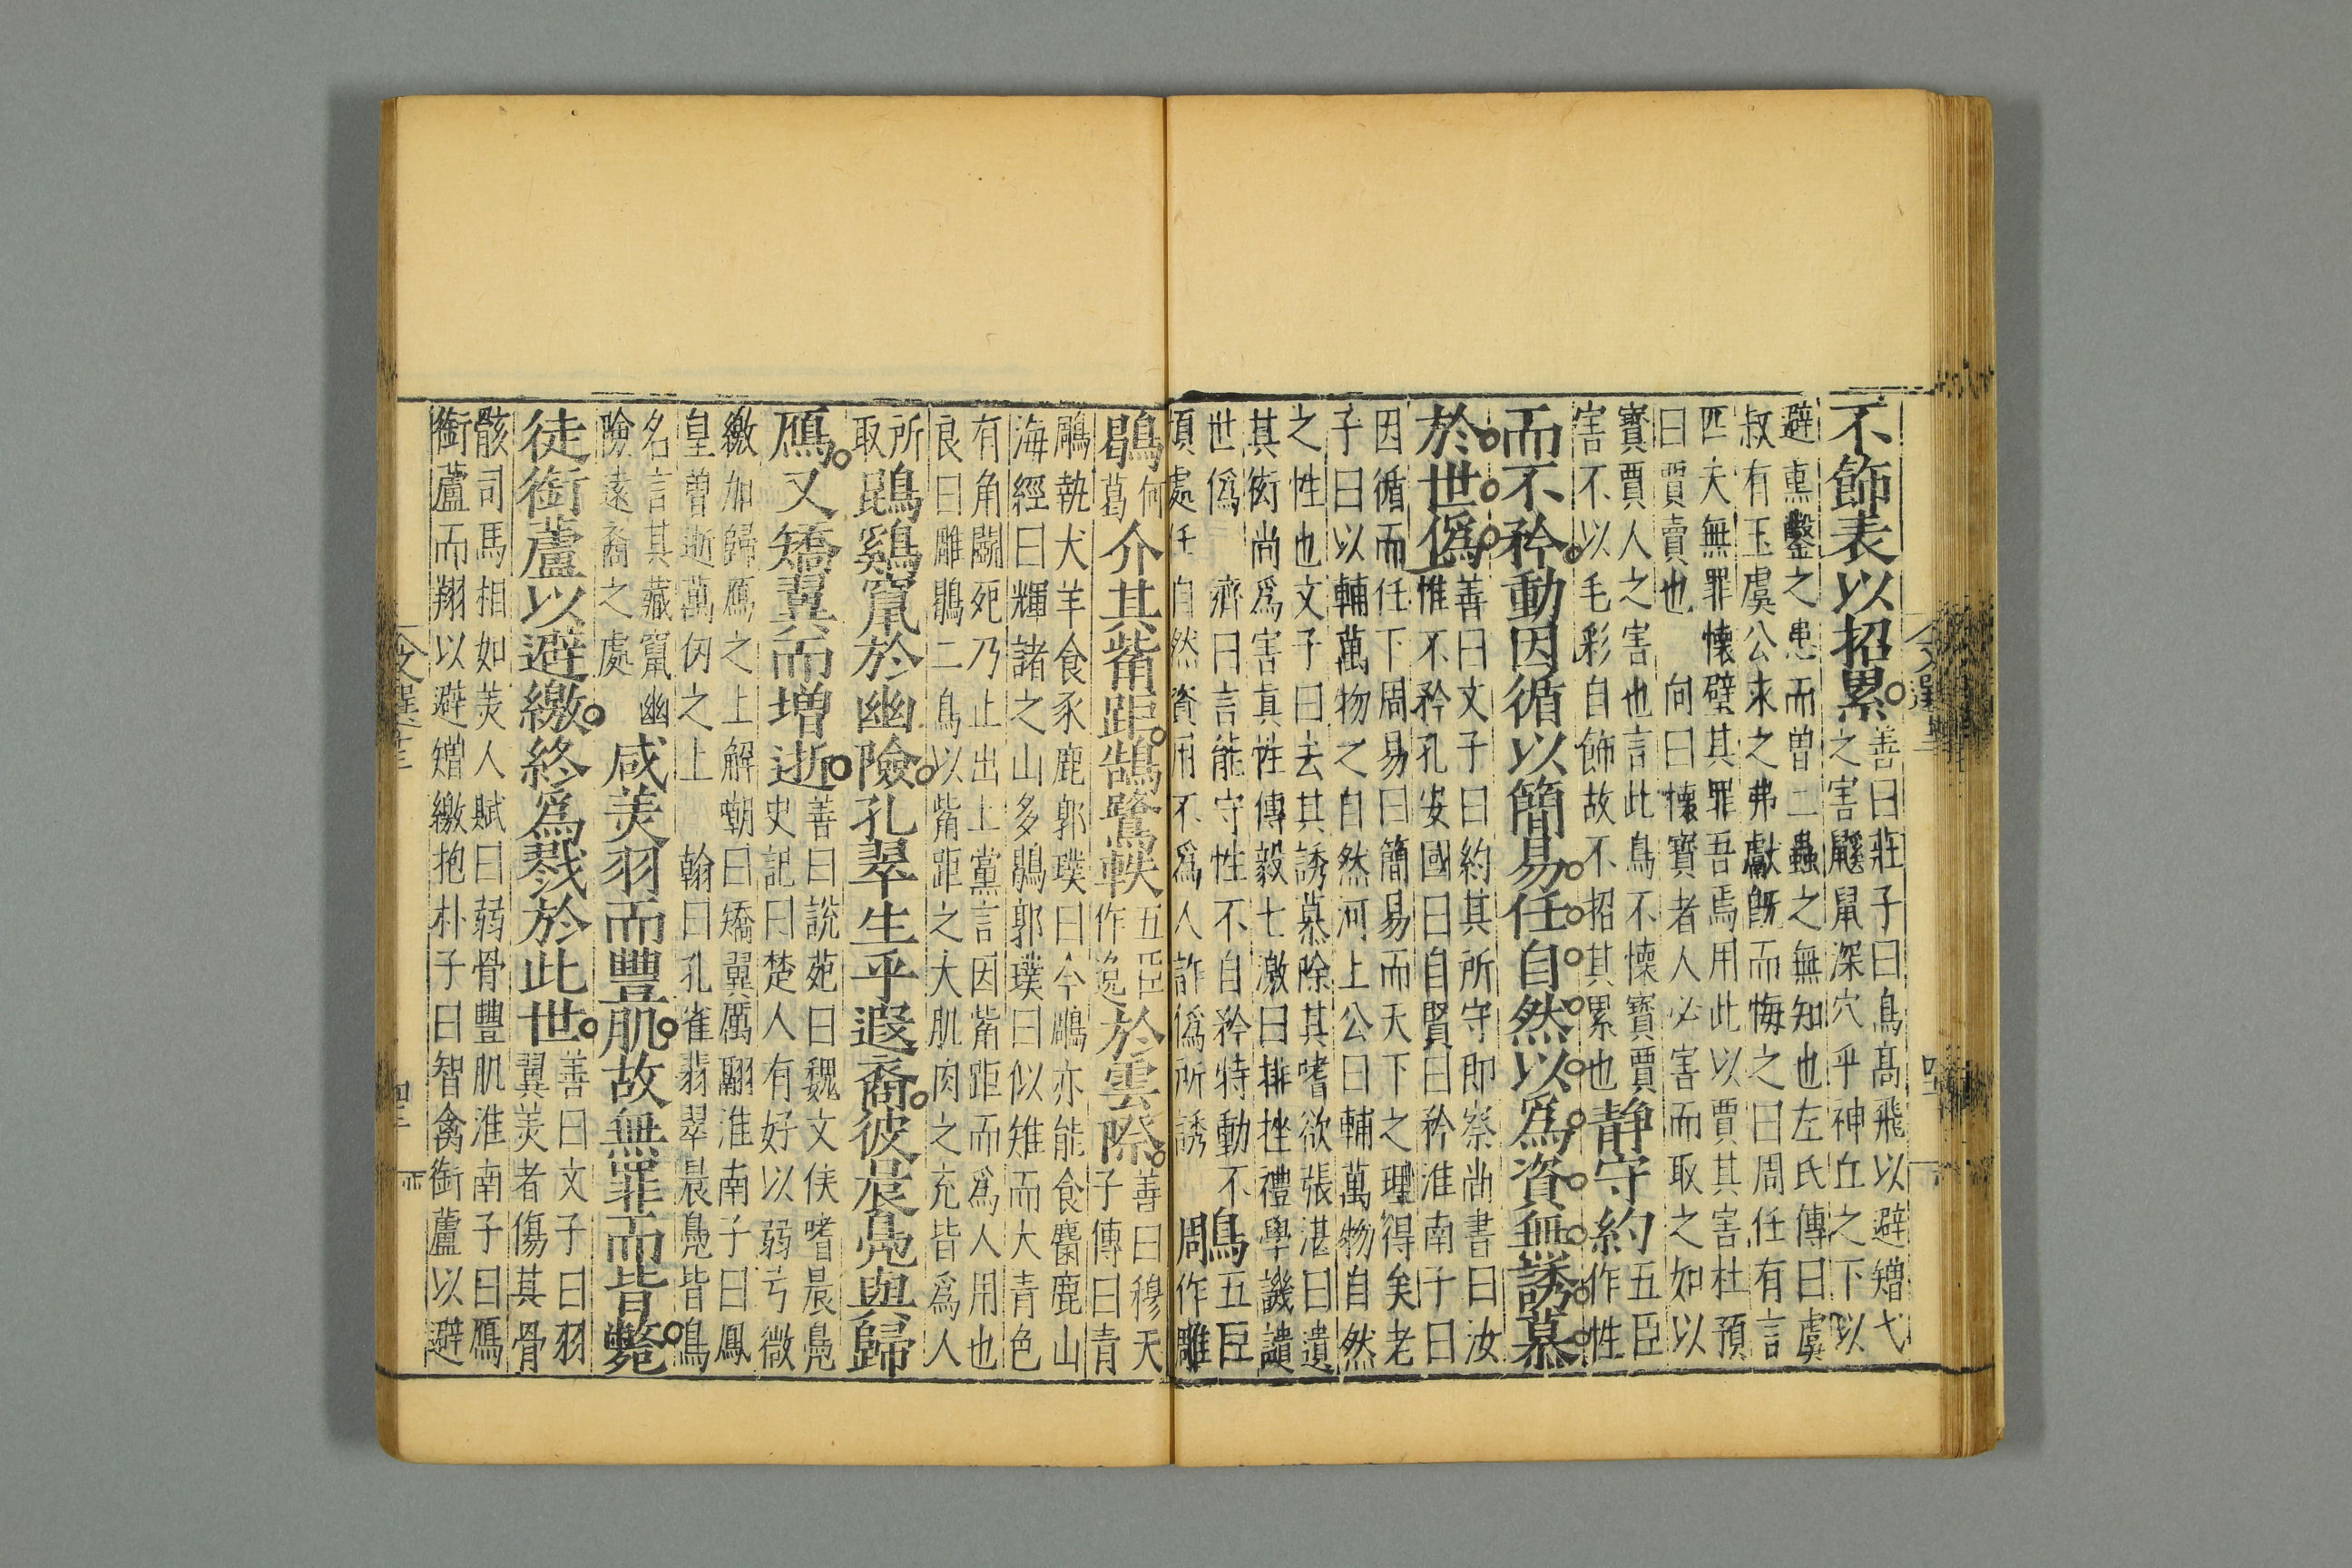 不飾表以招累
善曰莊子曰鳥髙飛以避矰弋
之害鼷鼠深穴乎神丘之下以
避熏鑿之患而曽二蟲之無知也左氏傳曰虞
叔有玉虞公求之弗獻旣而悔之曰周任有言
匹夫無罪懐璧其罪吾焉用此以賈其害杜預
曰賈賣也 向曰懐寳者人必害而取之如以
寳賈人之害也言此鳥不懐寳賈
害不以毛彩自飾故不招其累也
静守約
五臣
作性
而不矜動因循以簡易任自然以爲資無誘慕
於世僞
善曰文子曰約其所守即察尚書曰汝
惟不矜孔安國曰自賢曰矜淮南子曰
因循而任下周易曰簡易而天下之理得矣老
子曰以輔萬物之自然河上公曰輔萬物自然
之性也文子曰去其誘慕除其嗜欲張湛曰遺
其衒尚爲害真性傳毅七激曰排挫禮學譏譴
世僞 濟曰言能守性不自矜特動不
須處任自然資用不爲人詐僞所誘
鵰
五臣
作雕
鶡
何
葛
介其觜距鵠鷺軼
五臣
作逸
於雲際
善曰穆天
子傳曰青
鵰執犬羊食豕鹿郭璞曰今鵰亦能食麞鹿山
海經曰輝諸之山多鶡郭璞曰似雉而大青色
有角鬭死乃止出上黨言因觜距而爲人用也
良曰雕鶡二鳥以觜距之大肌肉之充皆爲人
所
取
鵾鷄竄於幽險孔翠生乎遐裔彼晨鳧與歸
鴈又矯翼而増逝
善曰說苑曰魏文侯嗜晨鳧
史記曰楚人有好以弱弓微
繳加歸鴈之上解嘲曰矯翼厲翮淮南子曰鳳
皇曽逝萬仞之上 翰曰孔雀翡翠晨鳧皆鳥
名言其藏竄幽
險遠裔之處
咸美羽而豐肌故無罪而皆斃
徒銜蘆以避繳終爲戮於此世
善曰文子曰羽
翼美者傷其骨
骸司馬相如美人賦曰弱骨豐肌淮南子曰鴈
銜蘆而翔以避矰繳抱朴子曰智禽銜蘆以避